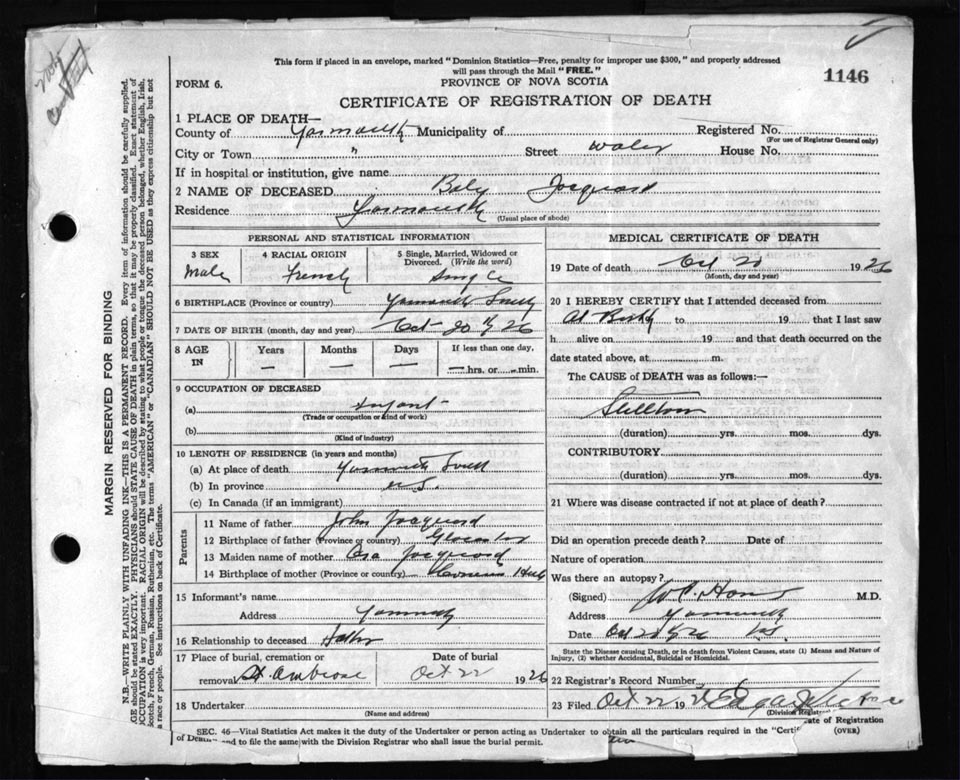 This form if placed in an envelope, marked "Dominion Statistics—Free, penalty for improper use $300," and properly addressed
will pass through the Mail "FREE."
1146
FORM 6.
PROVINCE OF NOVA SCOTIA
CERTIFICATE OF REGISTRATION OF DEATH
1 PLACE OF DEATH—
County of Yarmouth Municipality of Registered No.
(For use of Registrar General only)
City or Town " Street Water House No.
If in hospital or institution, give name
2 NAME OF DECEASED Baby Jacquard
Residence Yarmouth
(Usual place of abode)
PERSONAL AND STATISTICAL INFORMATION
3 SEX 4 RACIAL ORIGIN 5 Single, Married, Widowed or
Divorced. (Write the word)
Male French Single
6 BIRTHPLACE (Province or country) Yarmouth South
7 DATE OF BIRTH (month, day and year) Oct 20 26
8 AGE IN Years Months Days If less than one day,
— — — — hrs. or — min.
9 OCCUPATION OF DECEASED
(a) Infant
(Trade or occupation or kind of work)
(b)
(Kind of industry)
10 LENGTH OF RESIDENCE (in years and months)
(a) At place of death Yarmouth South
(b) In province N.S.
(c) In Canada (if an immigrant)
Parents
11 Name of father John Jacquard
12 Birthplace of father (Province or country)
13 Maiden name of mother Jacquard
14 Birthplace of mother (Province or country)
15 Informant's name
Address Yarmouth
16 Relationship to deceased Father
17 Place of burial, cremation or Date of burial
removal St. Ambrose Oct 22 1926
18 Undertaker
(Name and address)
MEDICAL CERTIFICATE OF DEATH
19 Date of death Oct 20 1926
(Month, day and year)
20 I HEREBY CERTIFY that I attended deceased from
At Birth to 19 that I last saw
h alive on 19 and that death occurred on the
date stated above, at m.
The CAUSE of DEATH was as follows:—
Stillborn
(duration) yrs. mos. dys.
CONTRIBUTORY
(duration) yrs. mos. dys.
21 Where was disease contracted if not at place of death?
Did an operation precede death? Date of
Nature of operation
Was there an autopsy?
(Signed) M.D.
Address Yarmouth
Date Oct 20 26 N.S.
State the Disease causing Death, or in death from Violent Causes, state (1) Means and Nature of
Injury, (2) whether Accidental, Suicidal or Homicidal.
22 Registrar's Record Number
23 Filed Oct 22 1926
(Division Registrar)
SEC. 46—Vital Statistics Act makes it the duty of the Undertaker or person acting as Undertaker to obtain all the particulars required in the "Certificate of Registration
of Death and to file the same with the Division Registrar who shall issue the burial permit. (OVER)
MARGIN RESERVED FOR BINDING
N.B.—WRITE PLAINLY WITH UNFADING INK—THIS IS A PERMANENT RECORD. Every item of information should be carefully supplied.
AGE should be stated EXACTLY. PHYSICIANS should STATE CAUSE OF DEATH in plain terms, so that it may be properly classified. Exact statement of
OCCUPATION is very important. RACIAL ORIGIN will be described by stating to what people or tongue the deceased person belonged, whether English, Irish,
Scotch, French, German, Russian, Ruthenian, etc. The terms "AMERICAN" or "CANADIAN" SHOULD NOT BE USED as they express citizenship but not
a race or people. See instructions on back of Certificate.